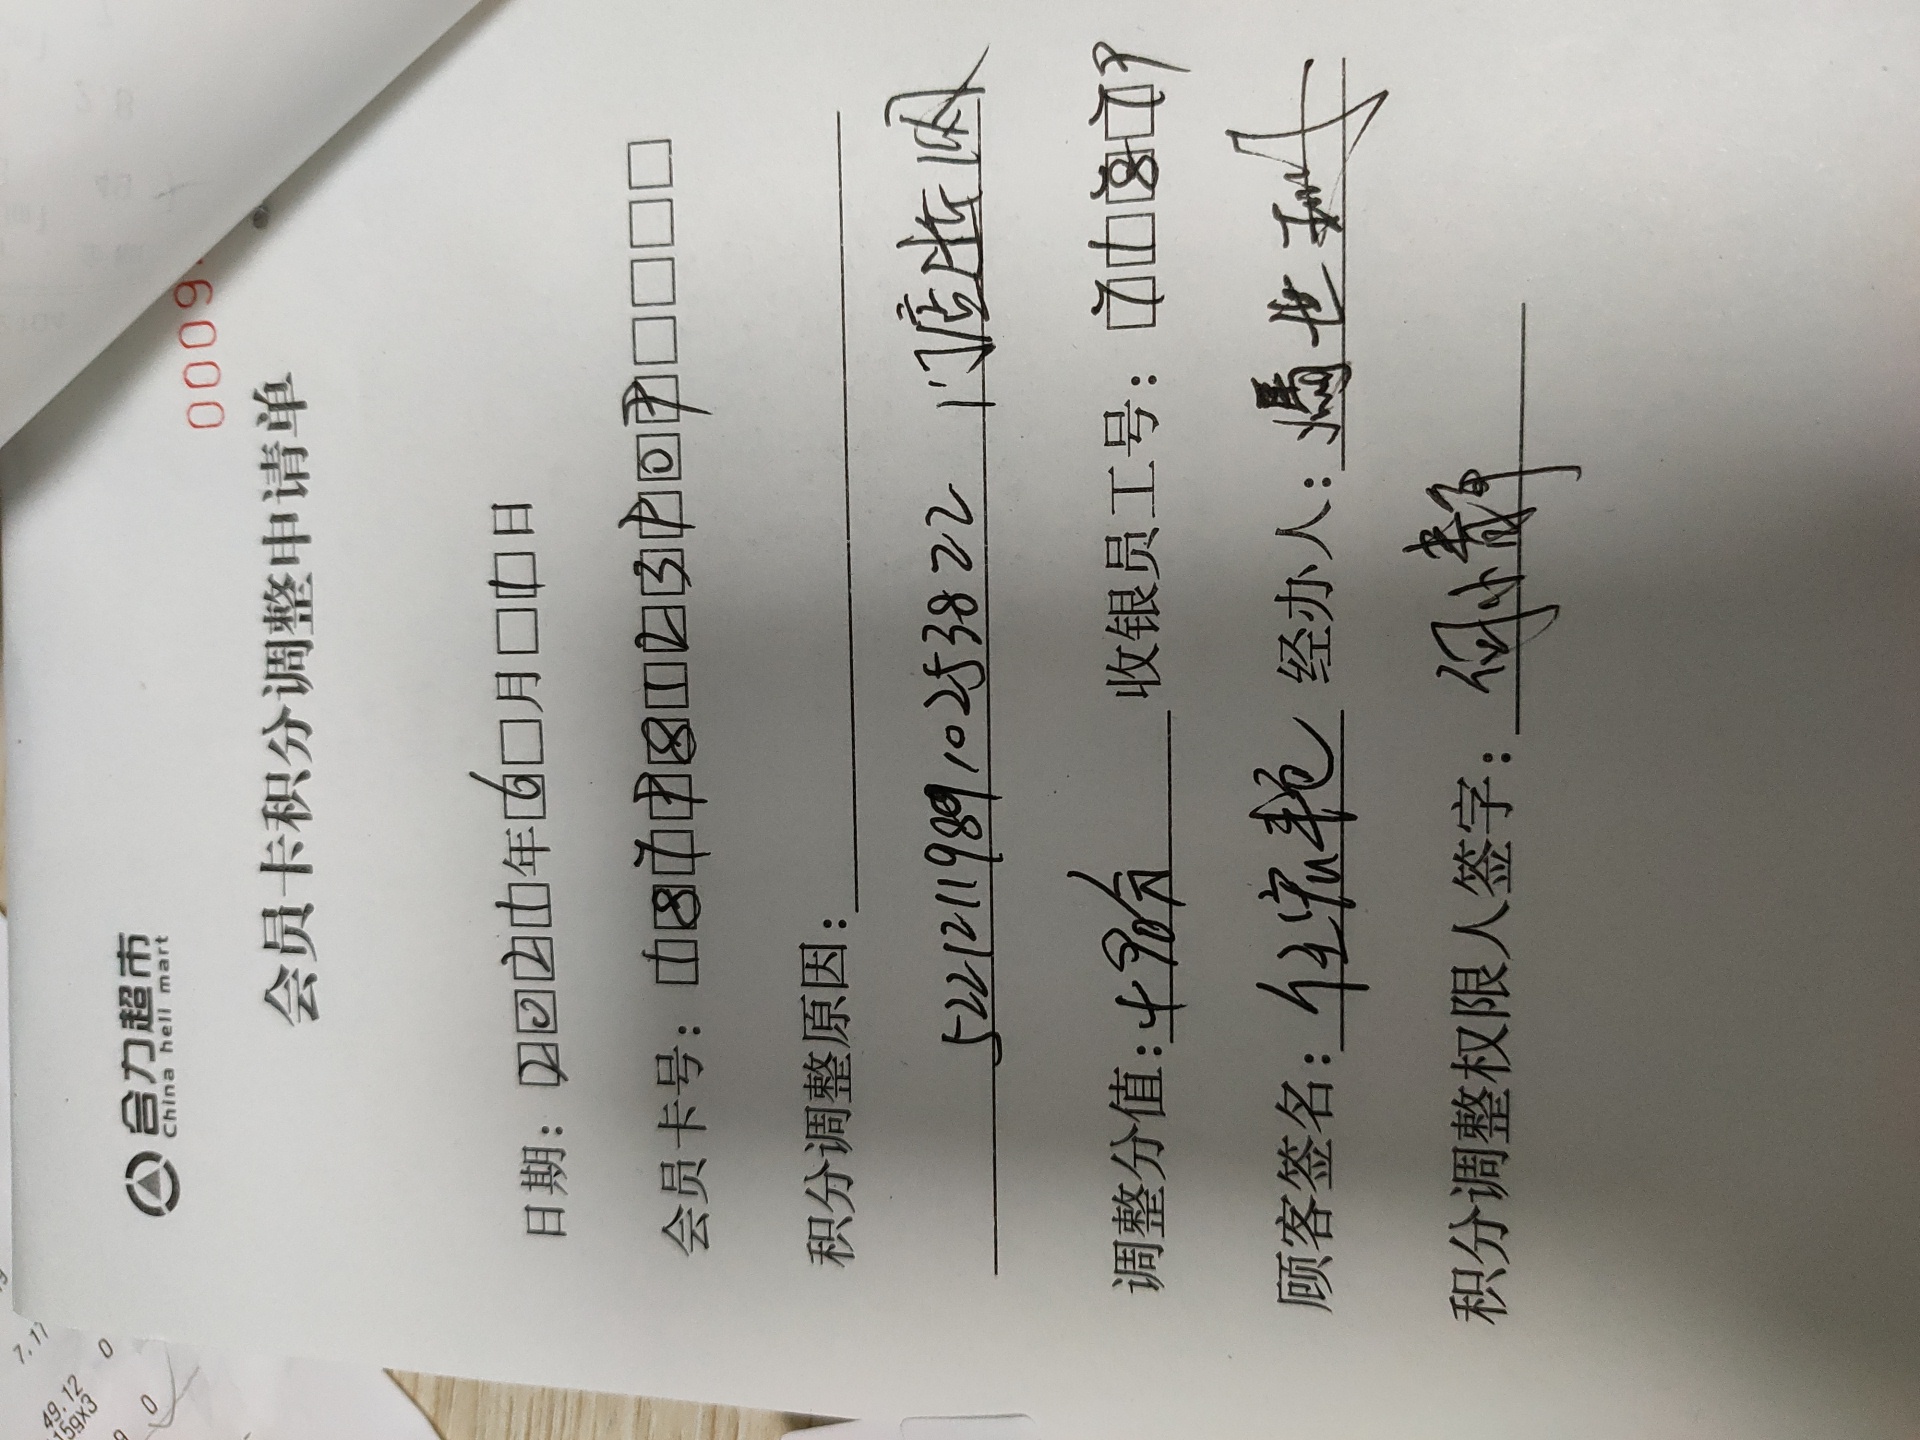 合力超市
China hell mart
0009
会员卡积分调整申请单
日期：2021年6月1日
会员卡号：18778123707
积分调整原因：
522121198910253822 门店断网
调整分值：十8分 收银员工号：71879
顾客签名：任
经办人：世
积分调整权限人签字：何小静
49.12
159x3
7.17
0
0